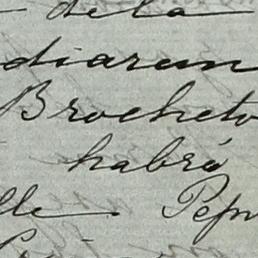 de la
diarum
Brocheto
habrá
lle. Pepi